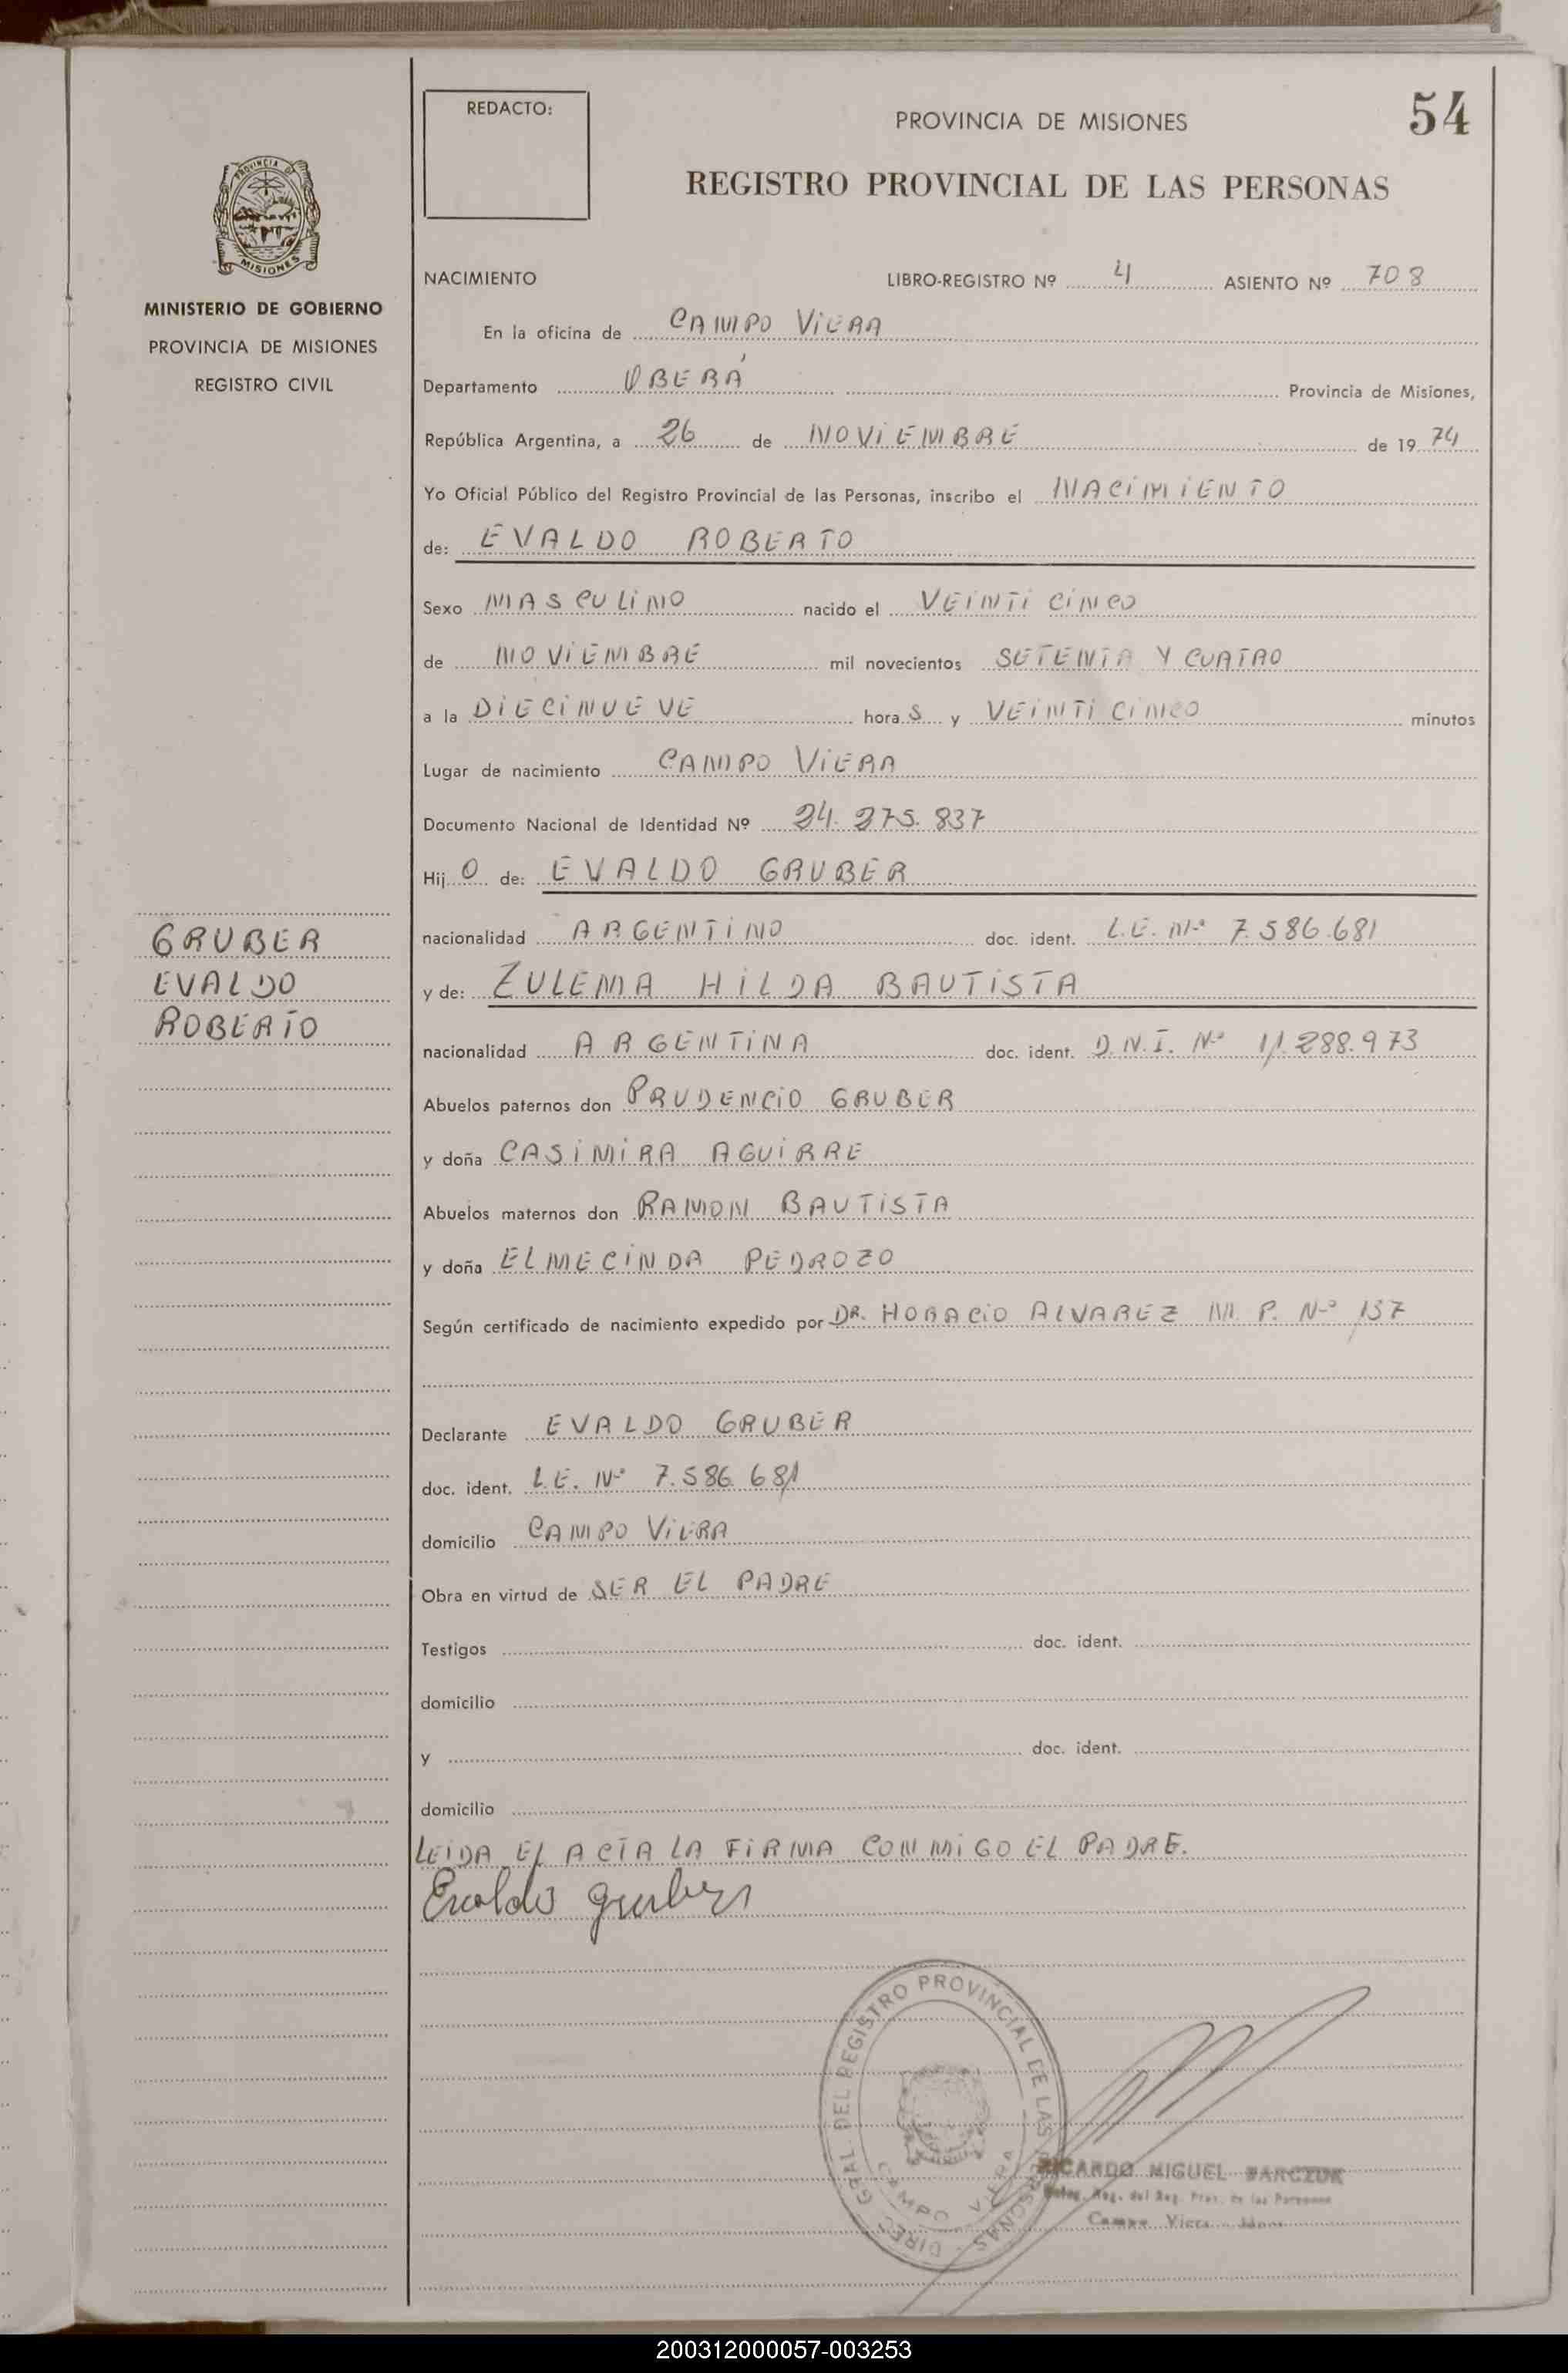 REDACTO:
PROVINCIA DE MISIONES
54
REGISTRO PROVINCIAL DE LAS PERSONAS
PROVINCIA DE
MISIONES
MINISTERIO DE GOBIERNO
PROVINCIA DE MISIONES
REGISTRO CIVIL
NACIMIENTO LIBRO-REGISTRO Nº 4 ASIENTO Nº 708
En la oficina de CAMPO VIERA
Departamento OBERÁ Provincia de Misiones,
República Argentina, a 26 de NOVIEMBRE de 1974
Yo Oficial Público del Registro Provincial de las Personas, inscribo el NACIMIENTO
de: EVALDO ROBERTO
Sexo MASCULINO nacido el VEINTICINCO
de NOVIEMBRE mil novecientos SETENTA Y CUATRO
a la DIECINUEVE horaS y VEINTICINCO minutos
Lugar de nacimiento CAMPO VIERA
Documento Nacional de Identidad Nº 24.275.837
HijO de: EVALDO GRUBER
nacionalidad ARGENTINO doc. ident. L.E. Nº 7.586.681
y de: ZULEMA HILDA BAUTISTA
nacionalidad ARGENTINA doc. ident. D.N.I. Nº 11.288.973
GRUBER
EVALDO
ROBERTO
Abuelos paternos don PRUDENCIO GRUBER
y doña CASIMIRA AGUIRRE
Abuelos maternos don RAMON BAUTISTA
y doña ELMECINDA PEDROZO
Según certificado de nacimiento expedido por DR. HORACIO ALVAREZ M. P. Nº 137
Declarante EVALDO GRUBER
doc. ident. L.E. Nº 7.586.681
domicilio CAMPO VIERA
Obra en virtud de SER EL PADRE
Testigos doc. ident.
domicilio
y doc. ident.
domicilio
LEIDA EL ACTA LA FIRMA CONMIGO EL PADRE.
Evaldo Gruber
DIREC. GRAL. DEL REGISTRO PROVINCIAL DE LAS PERSONAS
CAMPO VIERA
RICARDO MIGUEL BARCZUK
Deleg. Reg. del Reg. Prov. de las Personas
Campo Viera
200312000057-003253